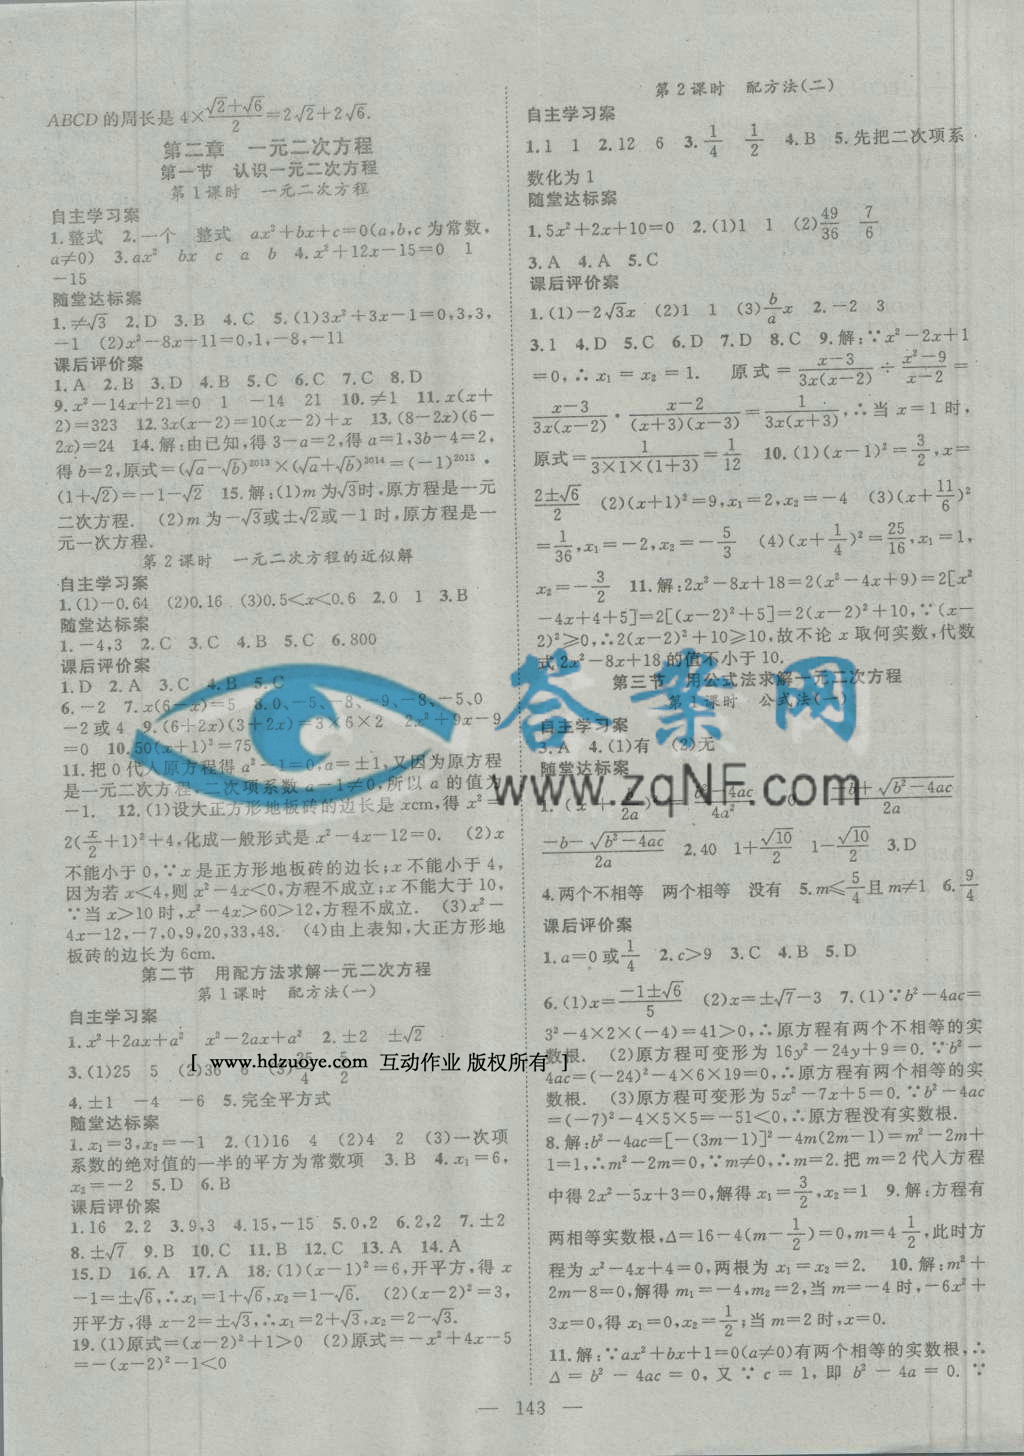 ABCD的周长是4×(√2+√6)/2=2√2+2√6.
第二章　一元二次方程
第一节　认识一元二次方程
第1课时　一元二次方程
自主学习案
1.整式　2.一个　整式　ax²+bx+c=0(a,b,c为常数,
a≠0)　3.ax²　bx　c　a　b　4.x²+12x-15=0　1
-15
随堂达标案
1.≠√3　2.D　3.B　4.C　5.(1)3x²+3x-1=0,3,3,
-1　(2)x²-8x-11=0,1,-8,-11
课后评价案
1.A　2.B　3.D　4.C　5.C　6.C　7.C　8.D
9.x²-14x+21=0　1　-14　21　10.≠1　11.x(x+
2)=323　12.3x(x-2)=10(x-2)+x　13.(8-2x)(6-
2x)=24　14.解:由已知,得3-a=2,得a=1,3b-4=2,
得b=2,原式=(√a-√b)²⁰¹³×(√a+√b)²⁰¹⁴=(-1)²⁰¹³·
(1+√2)=-1-√2　15.解:(1)m为√3时,原方程是一元
二次方程.　(2)m为-√3或±√2或-1时,原方程是一
元一次方程.
第2课时　一元二次方程的近似解
自主学习案
1.(1)-0.64　(2)0.16　(3)0.5<x<0.6　2.0　1　3.B
随堂达标案
1.-4,3　2.C　3.C　4.B　5.C　6.800
课后评价案
1.D　2.A　3.C　4.B　5.C
6.-2　7.x(6-x)=5　8.0、-5、-8、-9、-8、-5、0
-2或4　9.(6+2x)(3+2x)=3×6×2　2x²+9x-9
=0　10.50(x+1)²=75
11.把0代人原方程得a²-1=0,a=±1,又因为原方程
是一元二次方程,二次项系数a-1≠0,所以a的值为
-1.　12.(1)设大正方形地板砖的边长是xcm,得x²=
2(x/2+1)²+4,化成一般形式是x²-4x-12=0.　(2)x
不能小于4,∵x是正方形地板砖的边长;x不能小于4,
因为若x<4,则x²-4x<0,方程不成立;x不能大于10,
∵当x>10时,x²-4x>60>12,方程不成立.　(3)x²-
4x-12,-7,0,9,20,33,48.　(4)由上表知,大正方形地
板砖的边长为6cm.
第二节　用配方法求解一元二次方程
第1课时　配方法(一)
自主学习案
1.x²+2ax+a²　x²-2ax+a²　2.±2　±√2
3.(1)25　5　(2)36　6　(3)25/4　5/2
[ www.hdzuoye.com 互动作业 版权所有 ]
4.±1　-4　-6　5.完全平方式
随堂达标案
1.x₁=3,x₂=-1　2.(1)16　4　(2)4　2　(3)一次项
系数的绝对值的一半的平方为常数项　3.B　4.x₁=6,
x₂=-2　5.D　6.B
课后评价案
1.16　2.2　3.9,3　4.15,-15　5.0,2　6.2,2　7.±2
8.±√7　9.B　10.C　11.C　12.B　13.A　14.A
15.D　16.A　17.A　18.(1)(x-1)²=6,开平方,得x
-1=±√6,∴x₁=1+√6,x₂=1-√6.　(2)(x-2)²=3,
开平方,得x-2=±√3,∴x₁=2+√3,x₂=2-√3.
19.(1)原式=(x-2)²+1>0　(2)原式=-x²+4x-5
=-(x-2)²-1<0
第2课时　配方法(二)
自主学习案
1.1　1　2.12　6　3.1/4　1/2　4.B　5.先把二次项系
数化为1
随堂达标案
1.5x²+2x+10=0　2.(1)1　1　(2)49/36　7/6
3.A　4.A　5.C
课后评价案
1.(1)-2√3x　(2)1　1　(3)b/a x　2.-2　3
3.1　4.D　5.C　6.D　7.D　8.C　9.解:∵x²-2x+1
=0,∴x₁=x₂=1.　原式=(x-3)/(3x(x-2))÷(x²-9)/(x-2)=
(x-3)/(3x(x-2))·(x-2)/((x+3)(x-3))=1/(3x(x+3)),∴当x=1时,
原式=1/(3×1×(1+3))=1/12　10.(1)(x-1)²=3/2,x=
(2±√6)/2　(2)(x+1)²=9,x₁=2,x₂=-4　(3)(x+11/6)²
=1/36,x₁=-2,x₂=-5/3　(4)(x+1/4)²=25/16,x₁=1,
x₂=-3/2　11.解:2x²-8x+18=2(x²-4x+9)=2[x²
-4x+4+5]=2[(x-2)²+5]=2(x-2)²+10,∵(x-
2)²≥0,∴2(x-2)²+10≥10,故不论x取何实数,代数
式2x²-8x+18的值不小于10.
第三节　用公式法求解一元二次方程
第1课时　公式法(一)
自主学习案
3.A　4.(1)有　(2)无
随堂达标案
1.(x+b/2a)²=(b²-4ac)/4a²　≥0　(-b+√(b²-4ac))/2a
(-b-√(b²-4ac))/2a　2.40　1+√10/2　1-√10/2　3.D
4.两个不相等　两个相等　没有　5.m≤5/4且m≠1　6.9/4
课后评价案
1.a=0或1/4　2.c>9　3.C　4.B　5.D
6.(1)x=(-1±√6)/5　(2)x=±√7-3　7.(1)∵b²-4ac=
3²-4×2×(-4)=41>0,∴原方程有两个不相等的实
数根.　(2)原方程可变形为16y²-24y+9=0.∵b²-
4ac=(-24)²-4×6×19=0,∴原方程有两个相等的实
数根.　(3)原方程可变形为5x²-7x+5=0.∵b²-4ac
=(-7)²-4×5×5=-51<0,∴原方程没有实数根.
8.解:b²-4ac=[-(3m-1)]²-4m(2m-1)=m²-2m+
1=1,∴m²-2m=0,∵m≠0,∴m=2.把m=2代人方程
中得2x²-5x+3=0,解得x₁=3/2,x₂=1　9.解:方程有
两相等实数根,Δ=16-4(m-1/2)=0,m=4 1/2,此时方
程为x²-4x+4=0,两根为x₁=x₂=2.　10.解:m²+
2m-8=0,解得m₁=-4,m₂=2,当m=-4时,-6x²+
3x=0,得x₁=0,x₂=1/2;当m=2时,x=0.
11.解:∵ax²+bx+1=0(a≠0)有两个相等的实数根,∴
Δ=b²-4ac=0,又∵c=1,即b²-4a=0.∵
答案网
www.zqNF.com
— 143 —